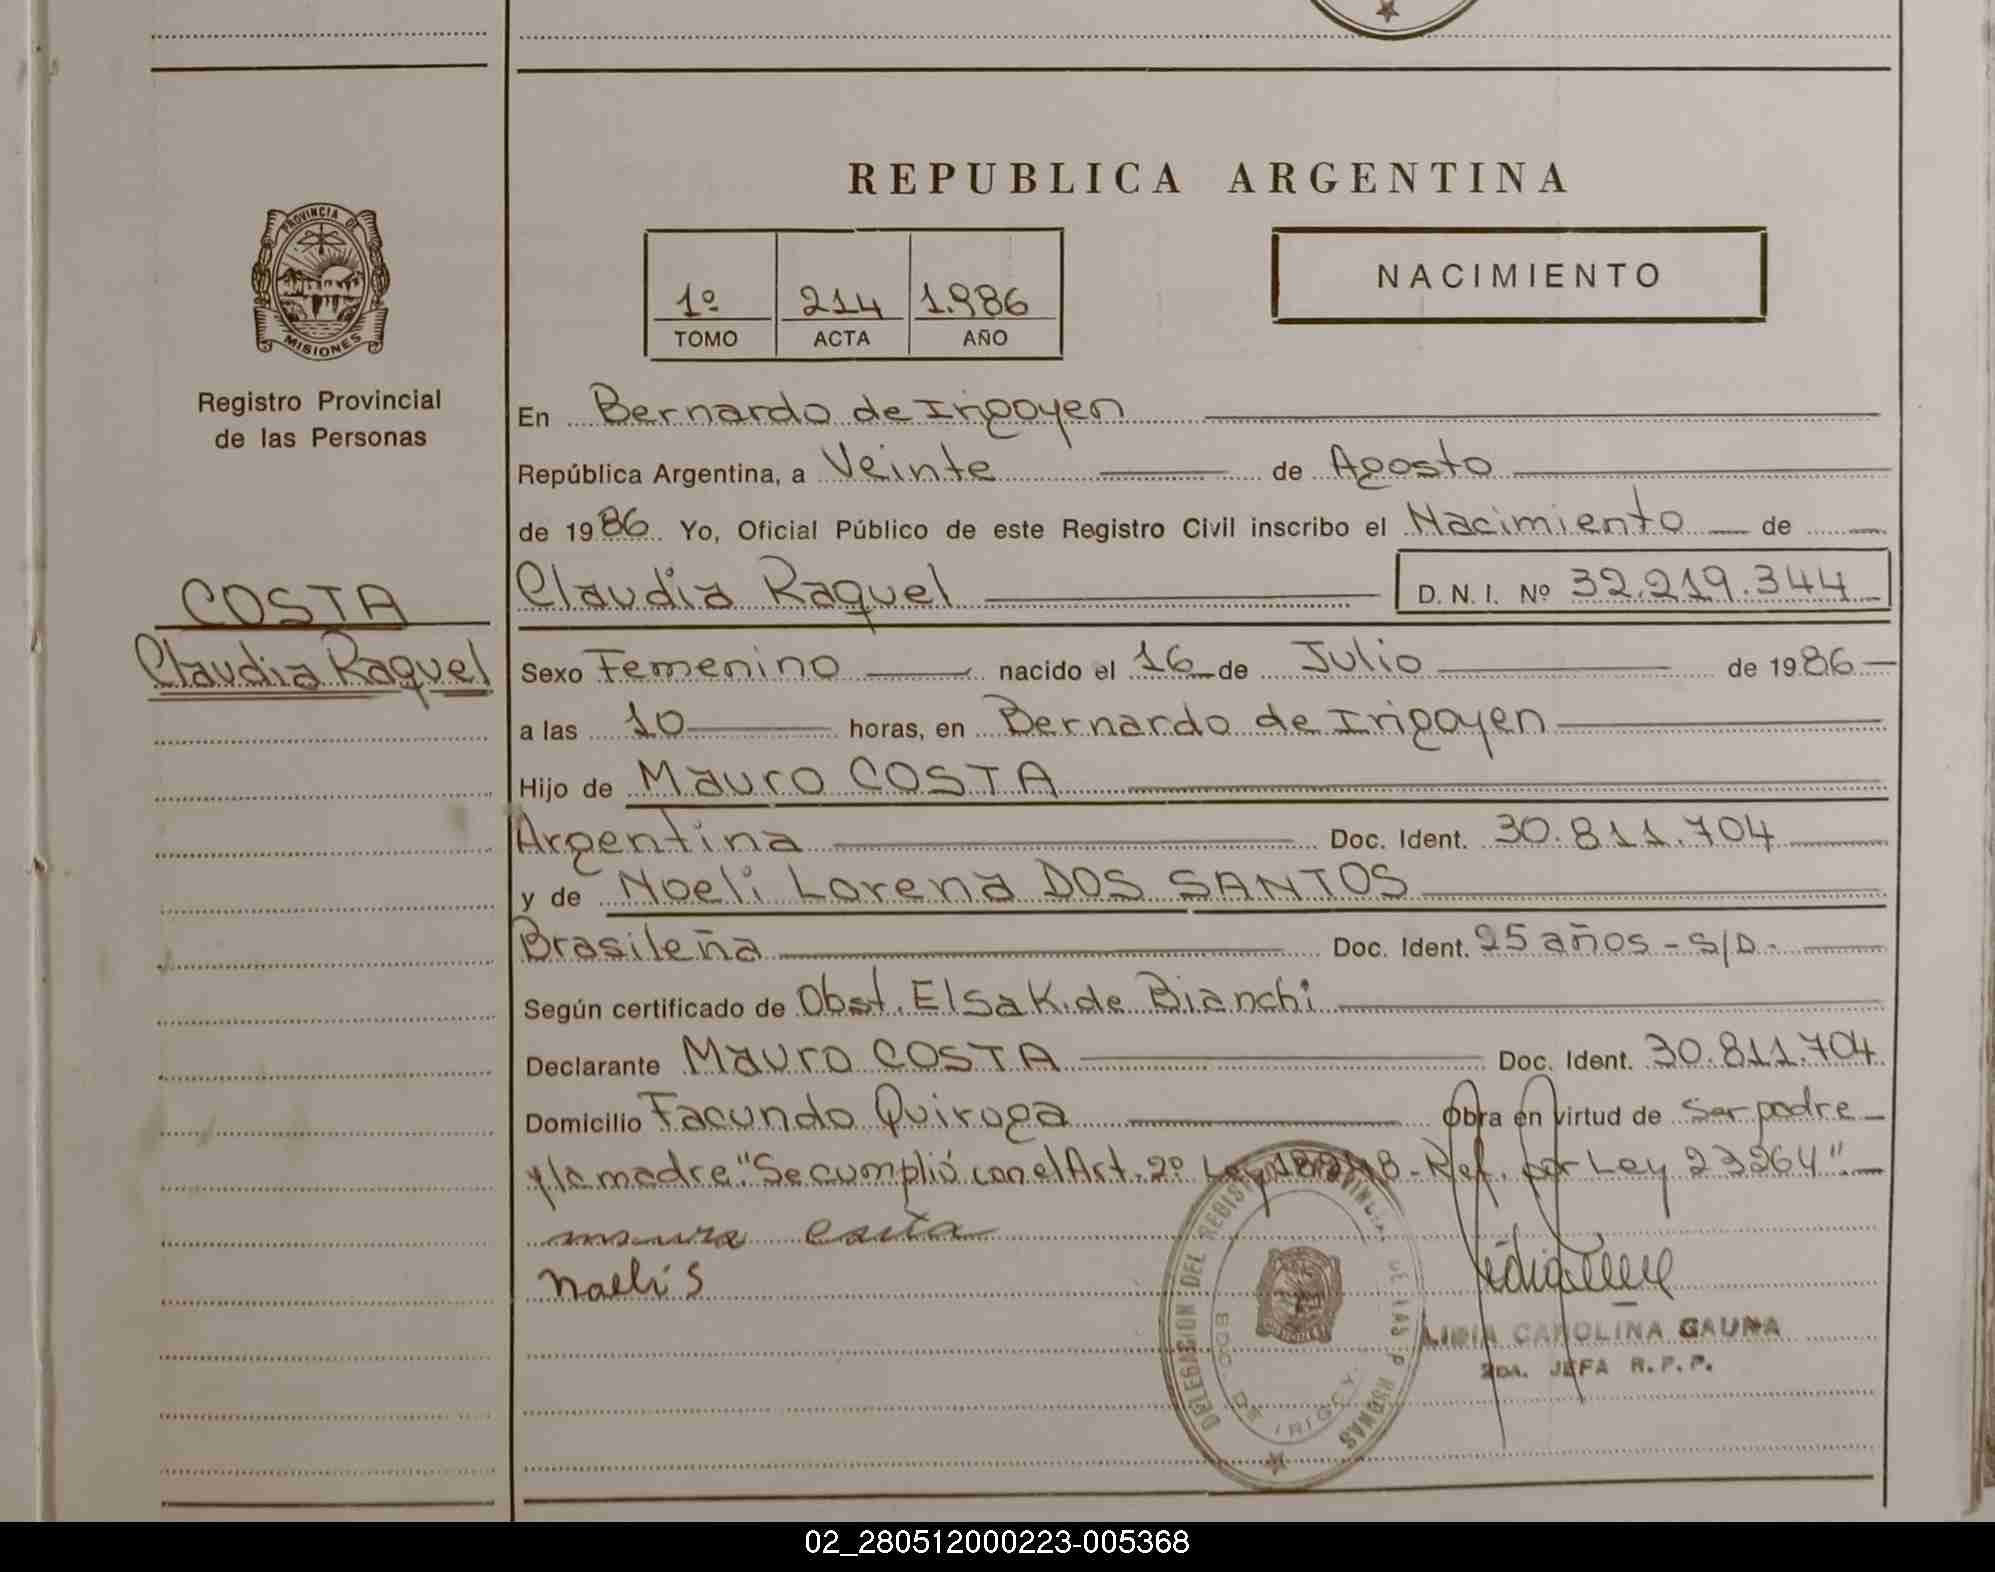 PROVINCIA DE
MISIONES
Registro Provincial
de las Personas
COSTA
Claudia Raquel
REPUBLICA ARGENTINA
1º 214 1.986
TOMO ACTA AÑO
NACIMIENTO
En Bernardo de Irigoyen
República Argentina, a Veinte de Agosto
de 1986 Yo, Oficial Público de este Registro Civil inscribo el Nacimiento de
Claudia Raquel D. N. I. Nº 32.219.344
Sexo Femenino nacido el 16 de Julio de 1986
a las 10 horas, en Bernardo de Irigoyen
Hijo de Mauro COSTA
Argentina Doc. Ident. 30.811.704
y de Noeli Lorena DOS SANTOS
Brasileña Doc. Ident. 25 años - S/D.-
Según certificado de Obst. Elsa K. de Bianchi
Declarante Mauro COSTA Doc. Ident. 30.811.704
Domicilio Facundo Quiroga Obra en virtud de Ser padre
y la madre. "Se cumplió con el Art. 2º Ley 18248 - Ref. por Ley 23264".
mauro costa
Naeli S
DELEGACION DEL REGISTRO PROVINCIAL DE LAS PERSONAS
BDO. DE IRIGOY.
LIDIA CAROLINA GAUNA
2DA. JEFA R.P.P.
02_280512000223-005368